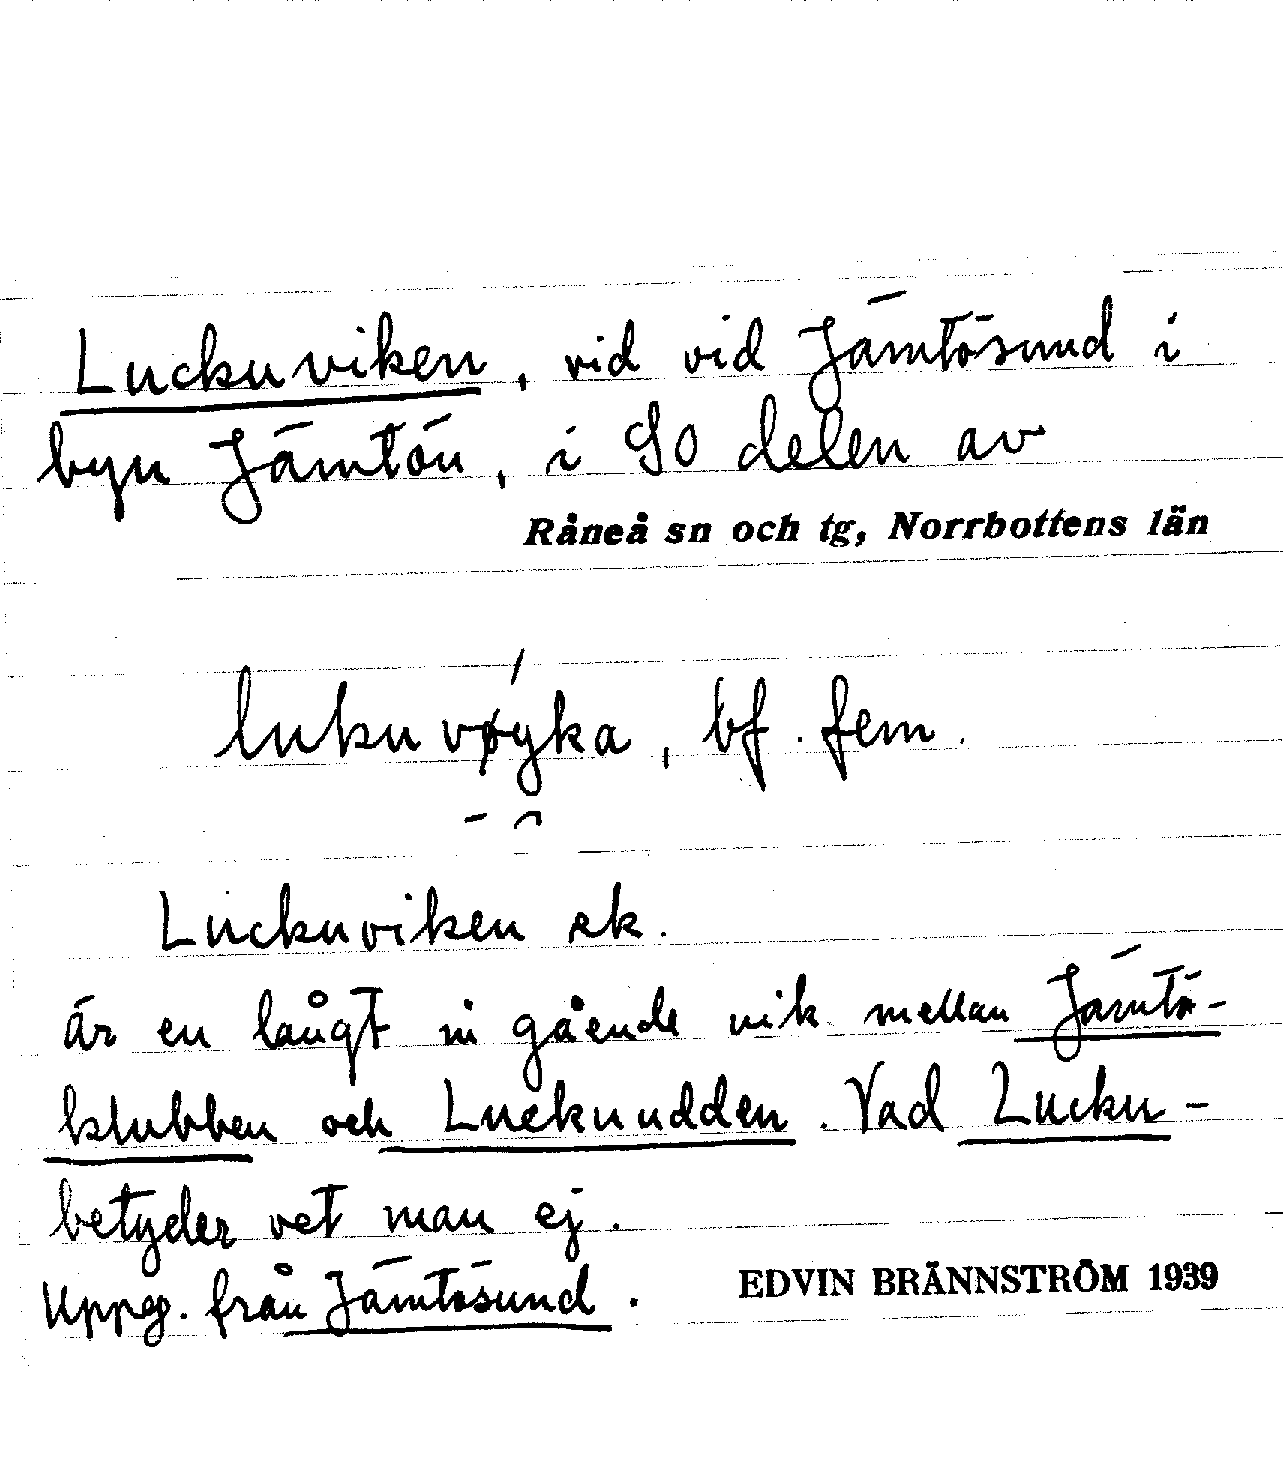 Luckuviken, vid vid Jämtösund i
byn Jämtön, i SO delen av
Råneå sn och tg, Norrbottens län
lukuvøyka, bf. fem.
Luckuviken ek.
är en långt in gående vik mellan Jämtö-
klubben och Luckuudden. Vad Lucku-
betyder vet man ej.
Uppg. från Jämtösund.
EDVIN BRÄNNSTRÖM 1939